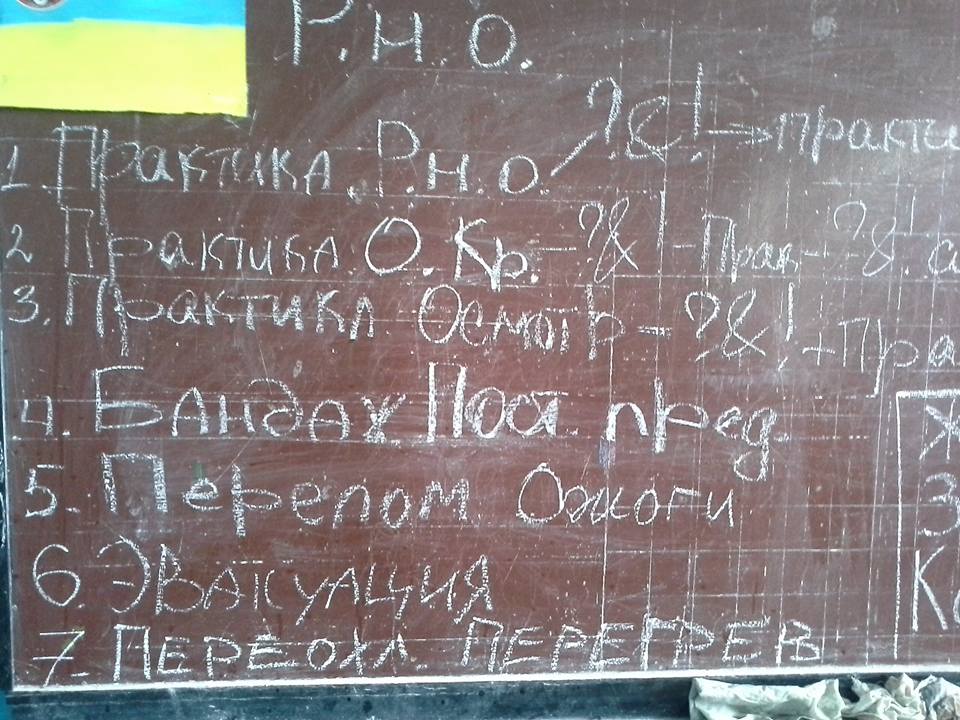 Р.Н.О.
1. Практика Р.Н.О. ?&! → практи
2 Практика О. Кр. - ?&! - Прак - ?&!
3. Практика Осмотр - ?&! + Пра
4. Бандаж Пост. пред.
5. Перелом Ожоги
6. Эвакуация
7. ПЕРЕОХЛ. ПЕРЕГРЕВ
Ж
З
К